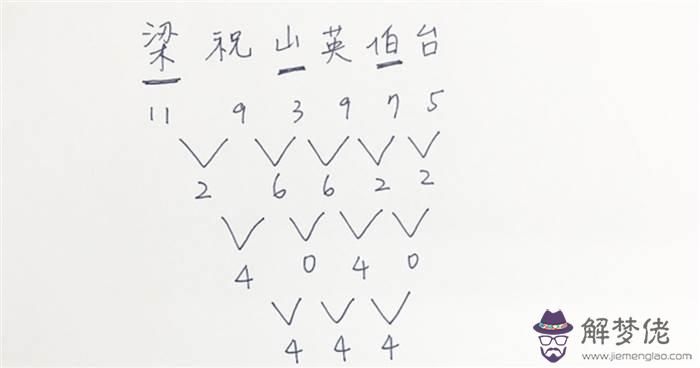 梁 祝 山 英 伯 台
11 9 3 9 7 5
2 6 6 2 2
4 0 4 0
4 4 4
解梦佬
www.jiemenglao.com